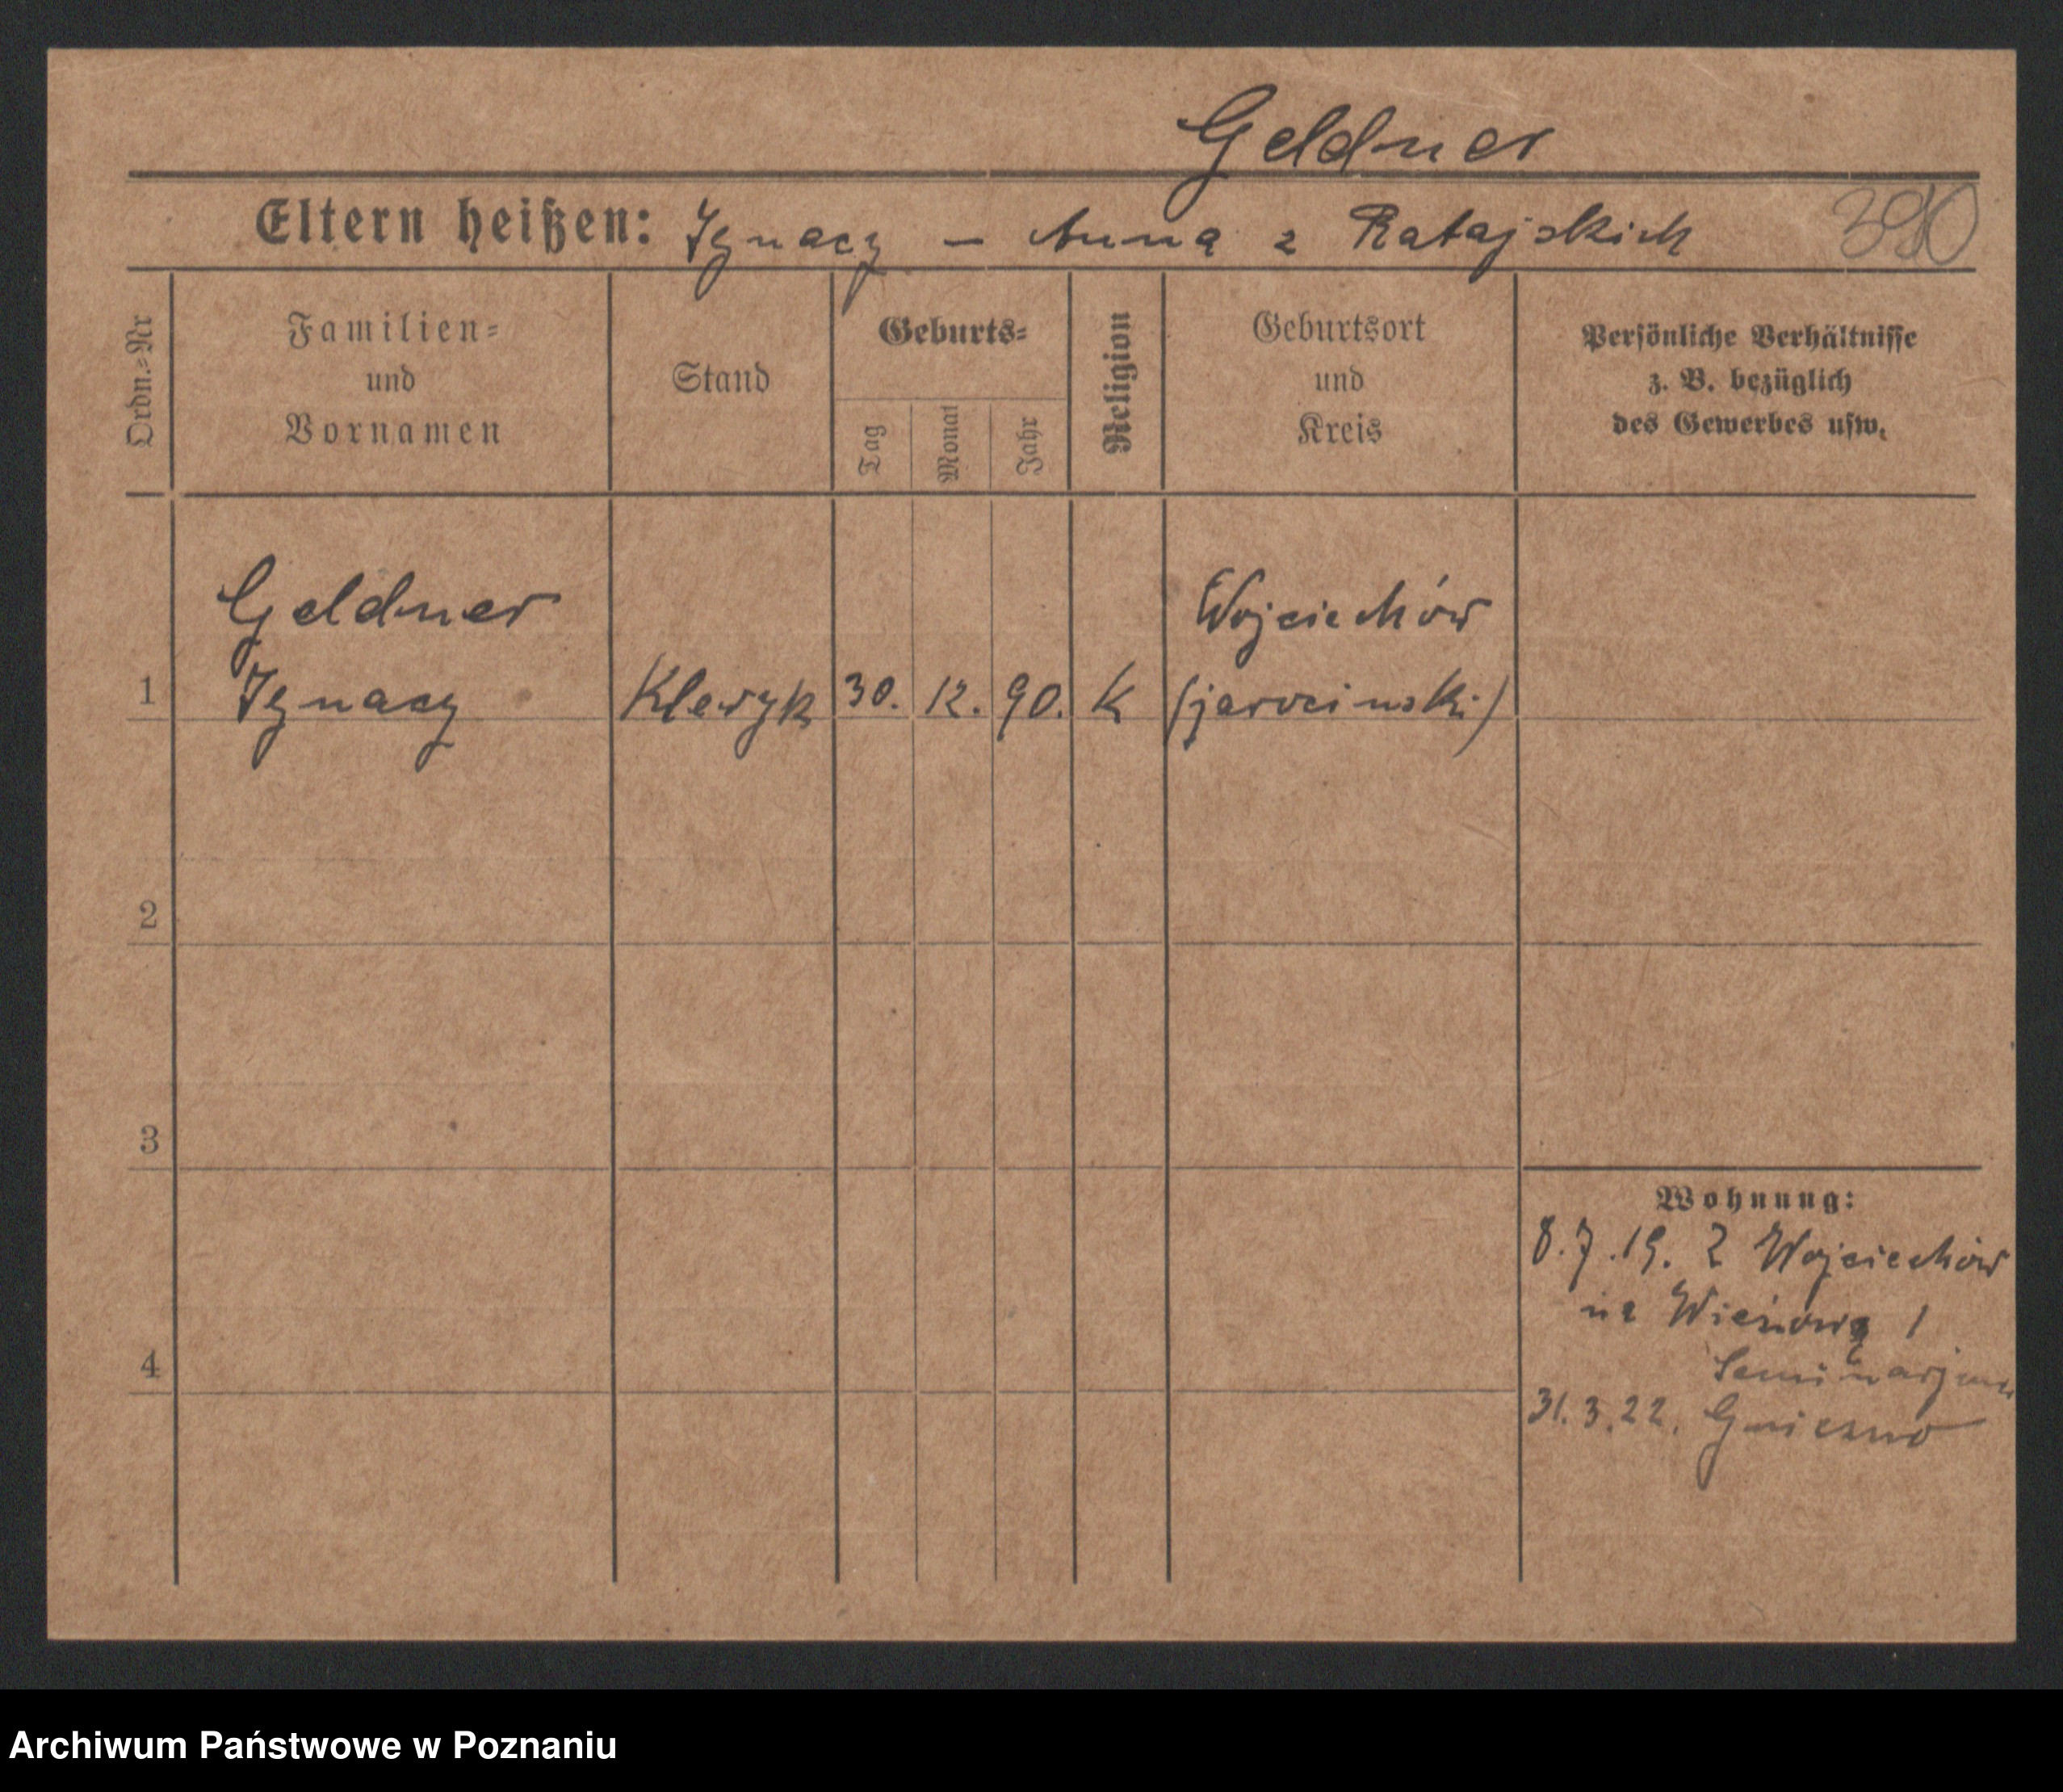 Geldner
Eltern heißen: Ignacy – Anna z Ratajskich
Ordn.=Nr
Familien=
und
Vornamen
Stand
Geburts=
Tag
Monat
Jahr
Religion
Geburtsort
und
Kreis
Persönliche Verhältnisse
z. B. bezüglich
des Gewerbes usw.
Geldner
Wojciechów
1 Ignacy Kleryk 30. 12. 90. K (jarocinski)
2
3
Wohnung:
8.7.19. Z Wojciechów
na Wieżową 1
4
31.3.22. Gniezno
Archiwum Państwowe w Poznaniu